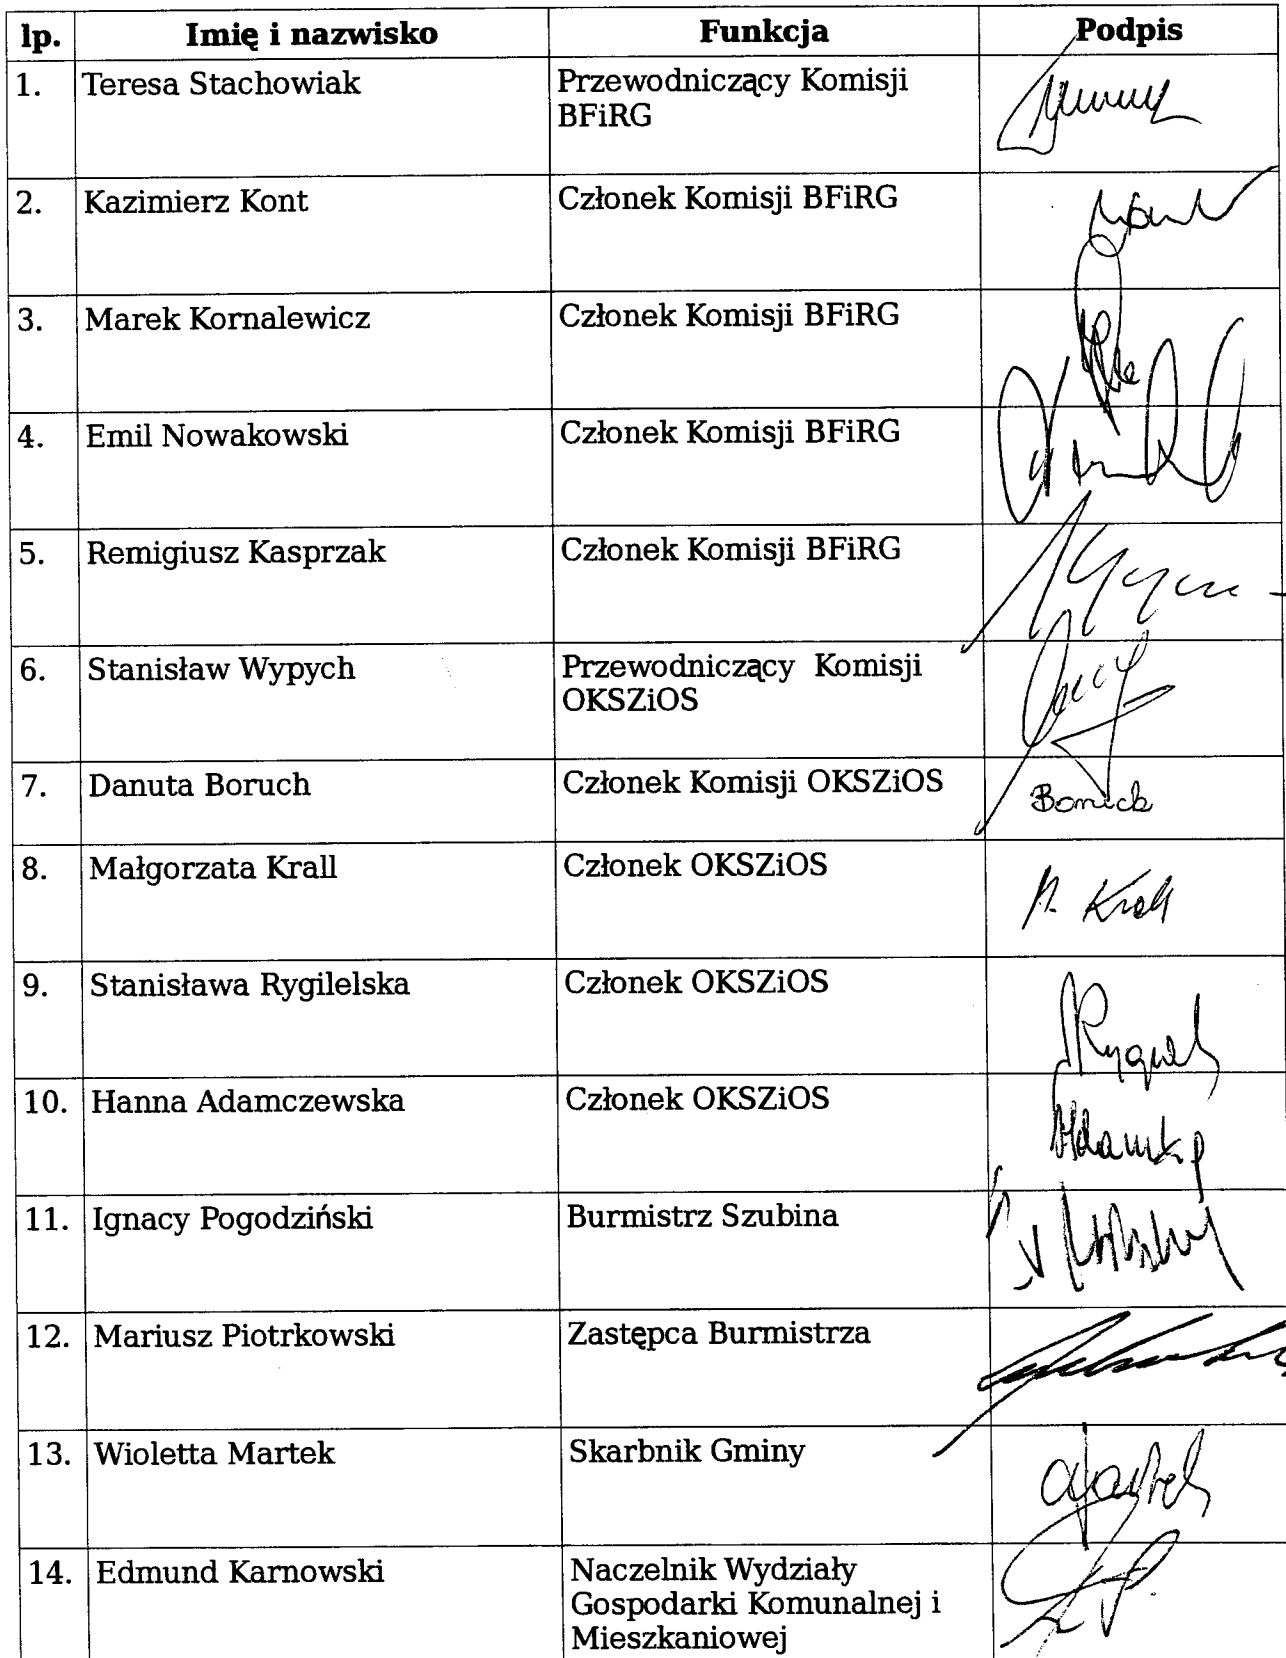 lp. Imię i nazwisko Funkcja Podpis
1. Teresa Stachowiak Przewodniczący Komisji
BFiRG
2. Kazimierz Kont Członek Komisji BFiRG
3. Marek Kornalewicz Członek Komisji BFiRG
4. Emil Nowakowski Członek Komisji BFiRG
5. Remigiusz Kasprzak Członek Komisji BFiRG
6. Stanisław Wypych Przewodniczący Komisji
OKSZiOS
7. Danuta Boruch Członek Komisji OKSZiOS
8. Małgorzata Krall Członek OKSZiOS
9. Stanisława Rygilelska Członek OKSZiOS
10. Hanna Adamczewska Członek OKSZiOS
11. Ignacy Pogodziński Burmistrz Szubina
12. Mariusz Piotrkowski Zastępca Burmistrza
13. Wioletta Martek Skarbnik Gminy
14. Edmund Karnowski Naczelnik Wydziały
Gospodarki Komunalnej i
Mieszkaniowej